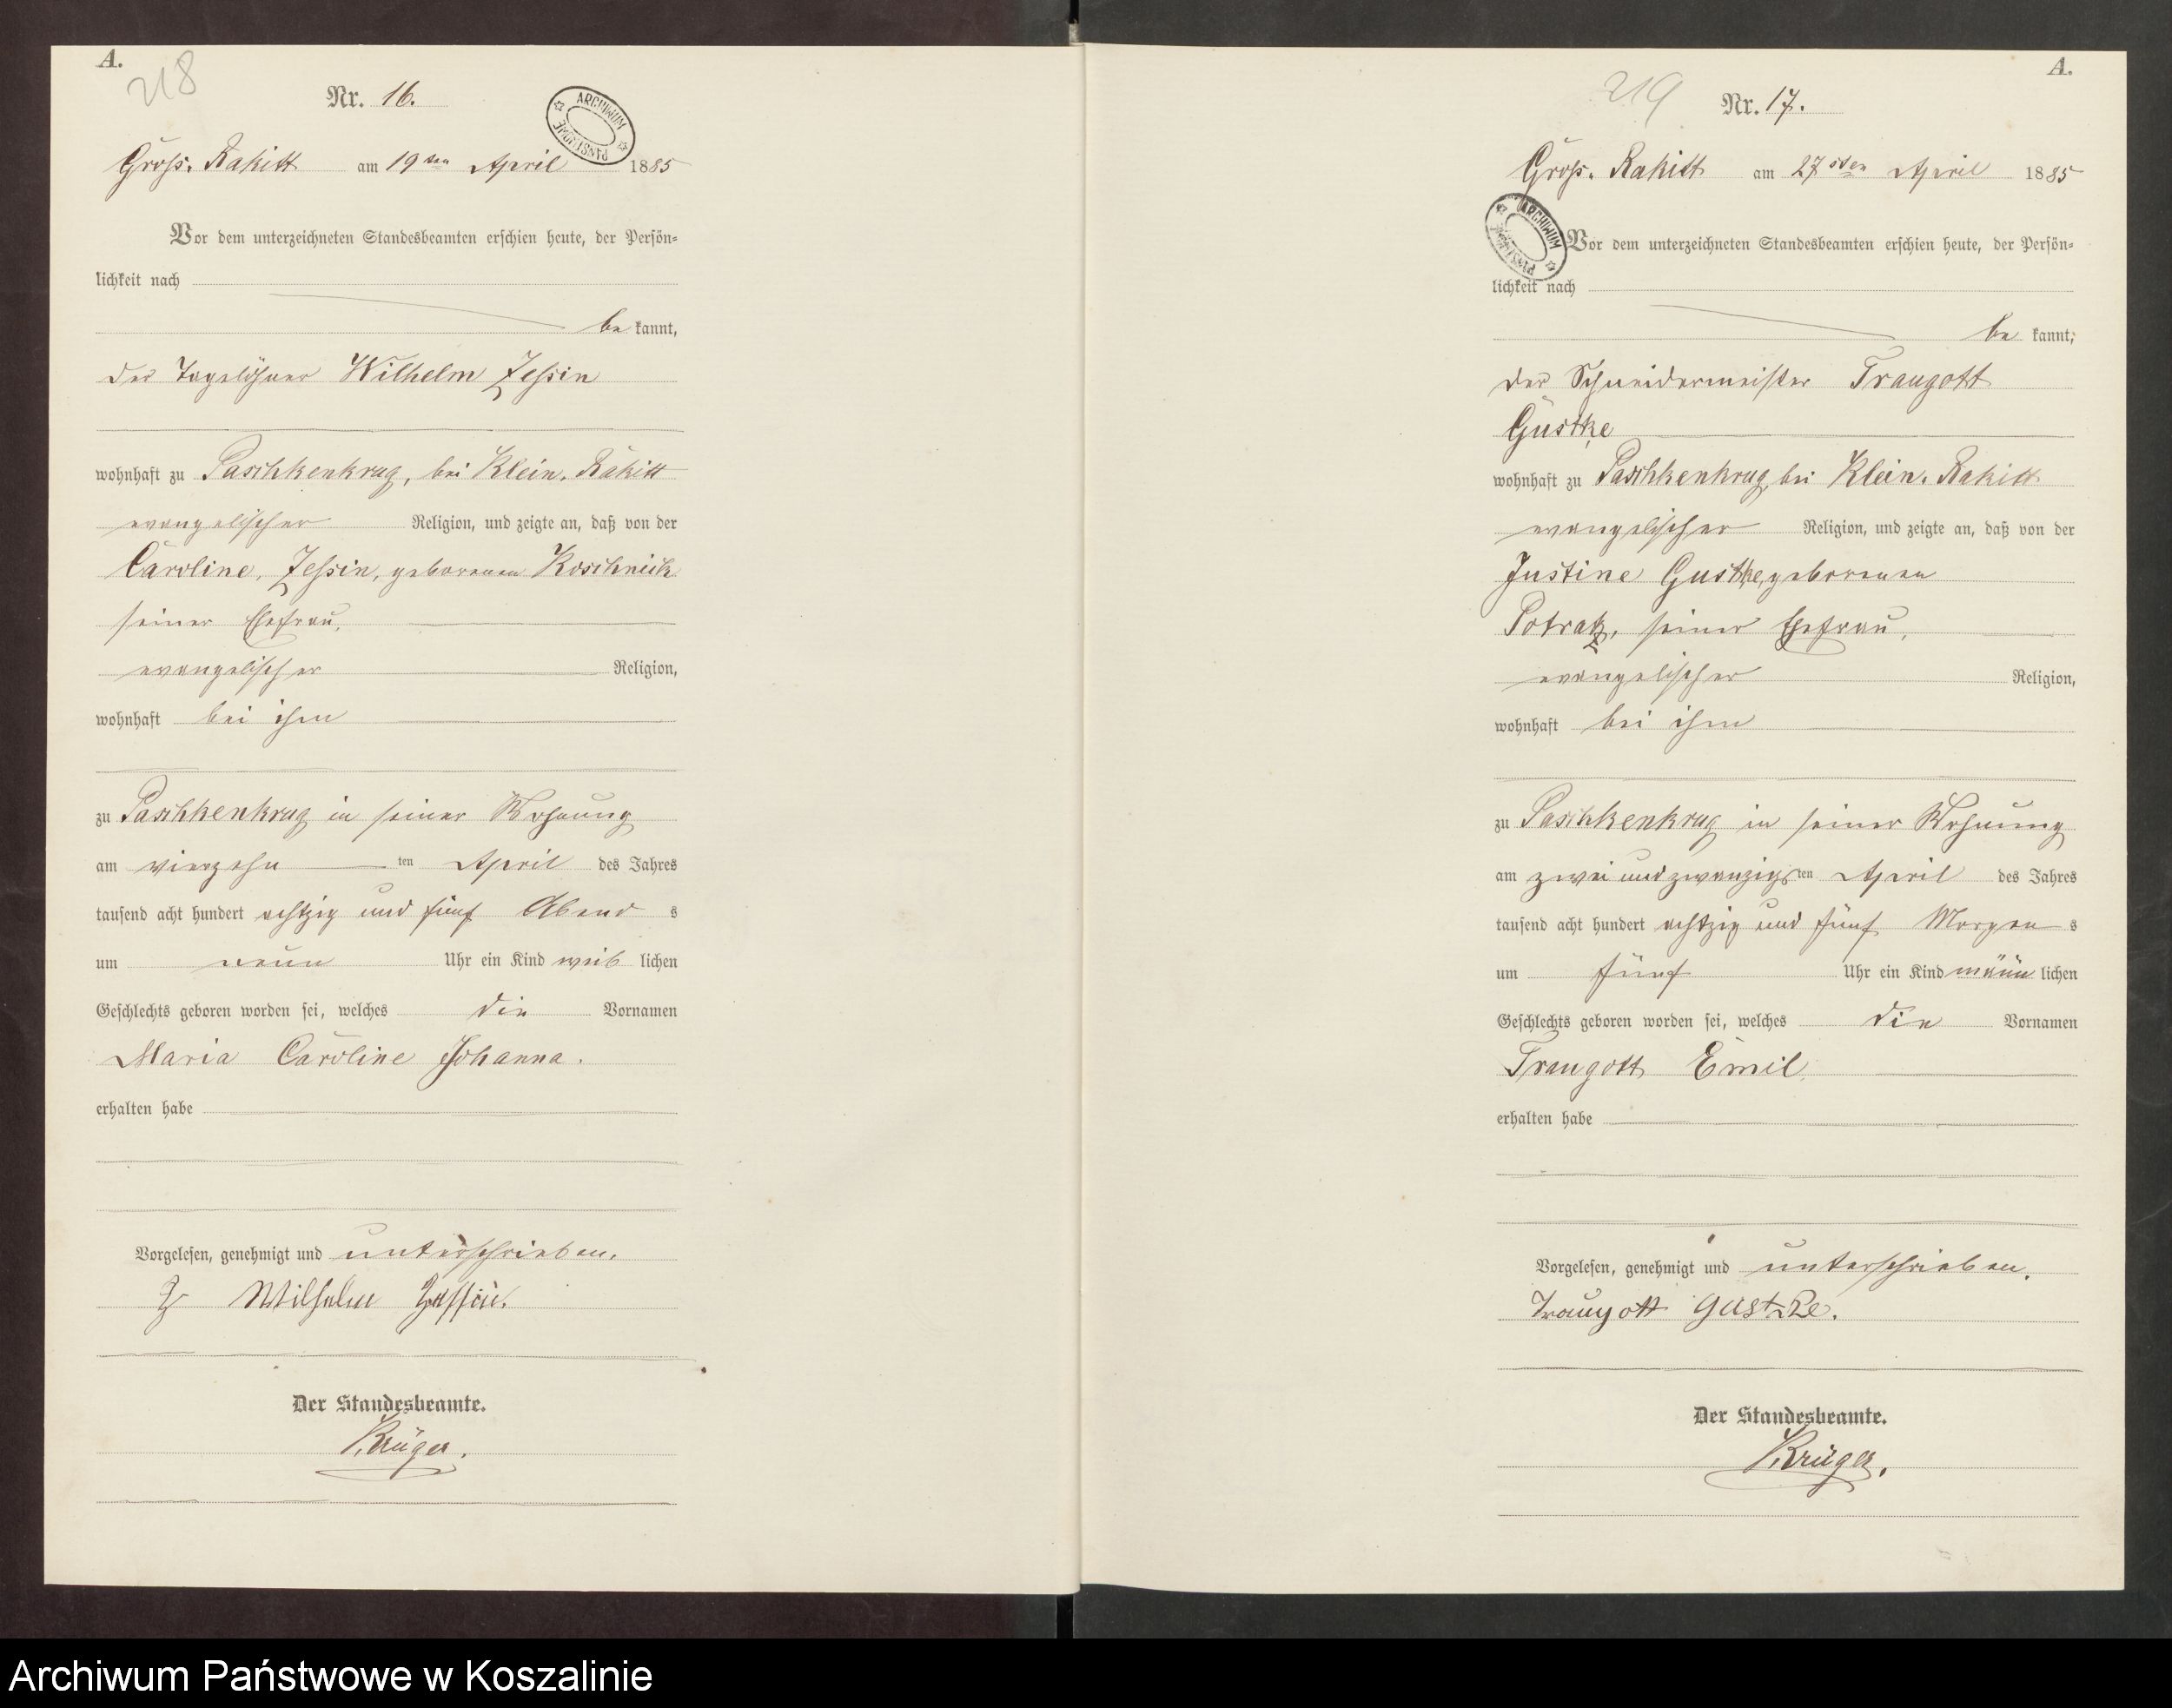 A.
218
Nr. 16.
ARCHIWUM PAŃSTWOWE
Gross. Rakitt am 19ten April 1885
Vor dem unterzeichneten Standesbeamten erschien heute, der Persön-
lichkeit nach
be kannt,
der Tagelöhner Wilhelm Zessin
wohnhaft zu Paschkenkrug, bei Klein. Rakitt
evangelischer Religion, und zeigte an, daß von der
Caroline, Zessin, geborenen Koschnick
seiner Ehefrau,
evangelischer Religion,
wohnhaft bei ihm
zu Paschkenkrug in seiner Wohnung
am vierzehn ten April des Jahres
tausend acht hundert achtzig und fünf Abend s
um neun Uhr ein Kind weib lichen
Geschlechts geboren worden sei, welches die Vornamen
Maria Caroline Johanna.
erhalten habe
Vorgelesen, genehmigt und unterschrieben.
Wilhelm Zessin.
Der Standesbeamte.
Krüger.
A.
219
Nr. 17.
Gross. Rakitt am 27sten April 1885
ARCHIWUM PAŃSTWOWE
Vor dem unterzeichneten Standesbeamten erschien heute, der Persön-
lichkeit nach
be kannt,
der Schneidermeister Traugott
Gustke
wohnhaft zu Paschkenkrug, bei Klein. Rakitt
evangelischer Religion, und zeigte an, daß von der
Justine Gustke, geborenen
Potratz, seiner Ehefrau,
evangelischer Religion,
wohnhaft bei ihm
zu Paschkenkrug in seiner Wohnung
am zwei und zwanzigs ten April des Jahres
tausend acht hundert achtzig und fünf Morgen s
um fünf Uhr ein Kind männ lichen
Geschlechts geboren worden sei, welches die Vornamen
Traugott Emil
erhalten habe
Vorgelesen, genehmigt und unterschrieben.
Traugott Gustke.
Der Standesbeamte.
Krüger.
Archiwum Państwowe w Koszalinie